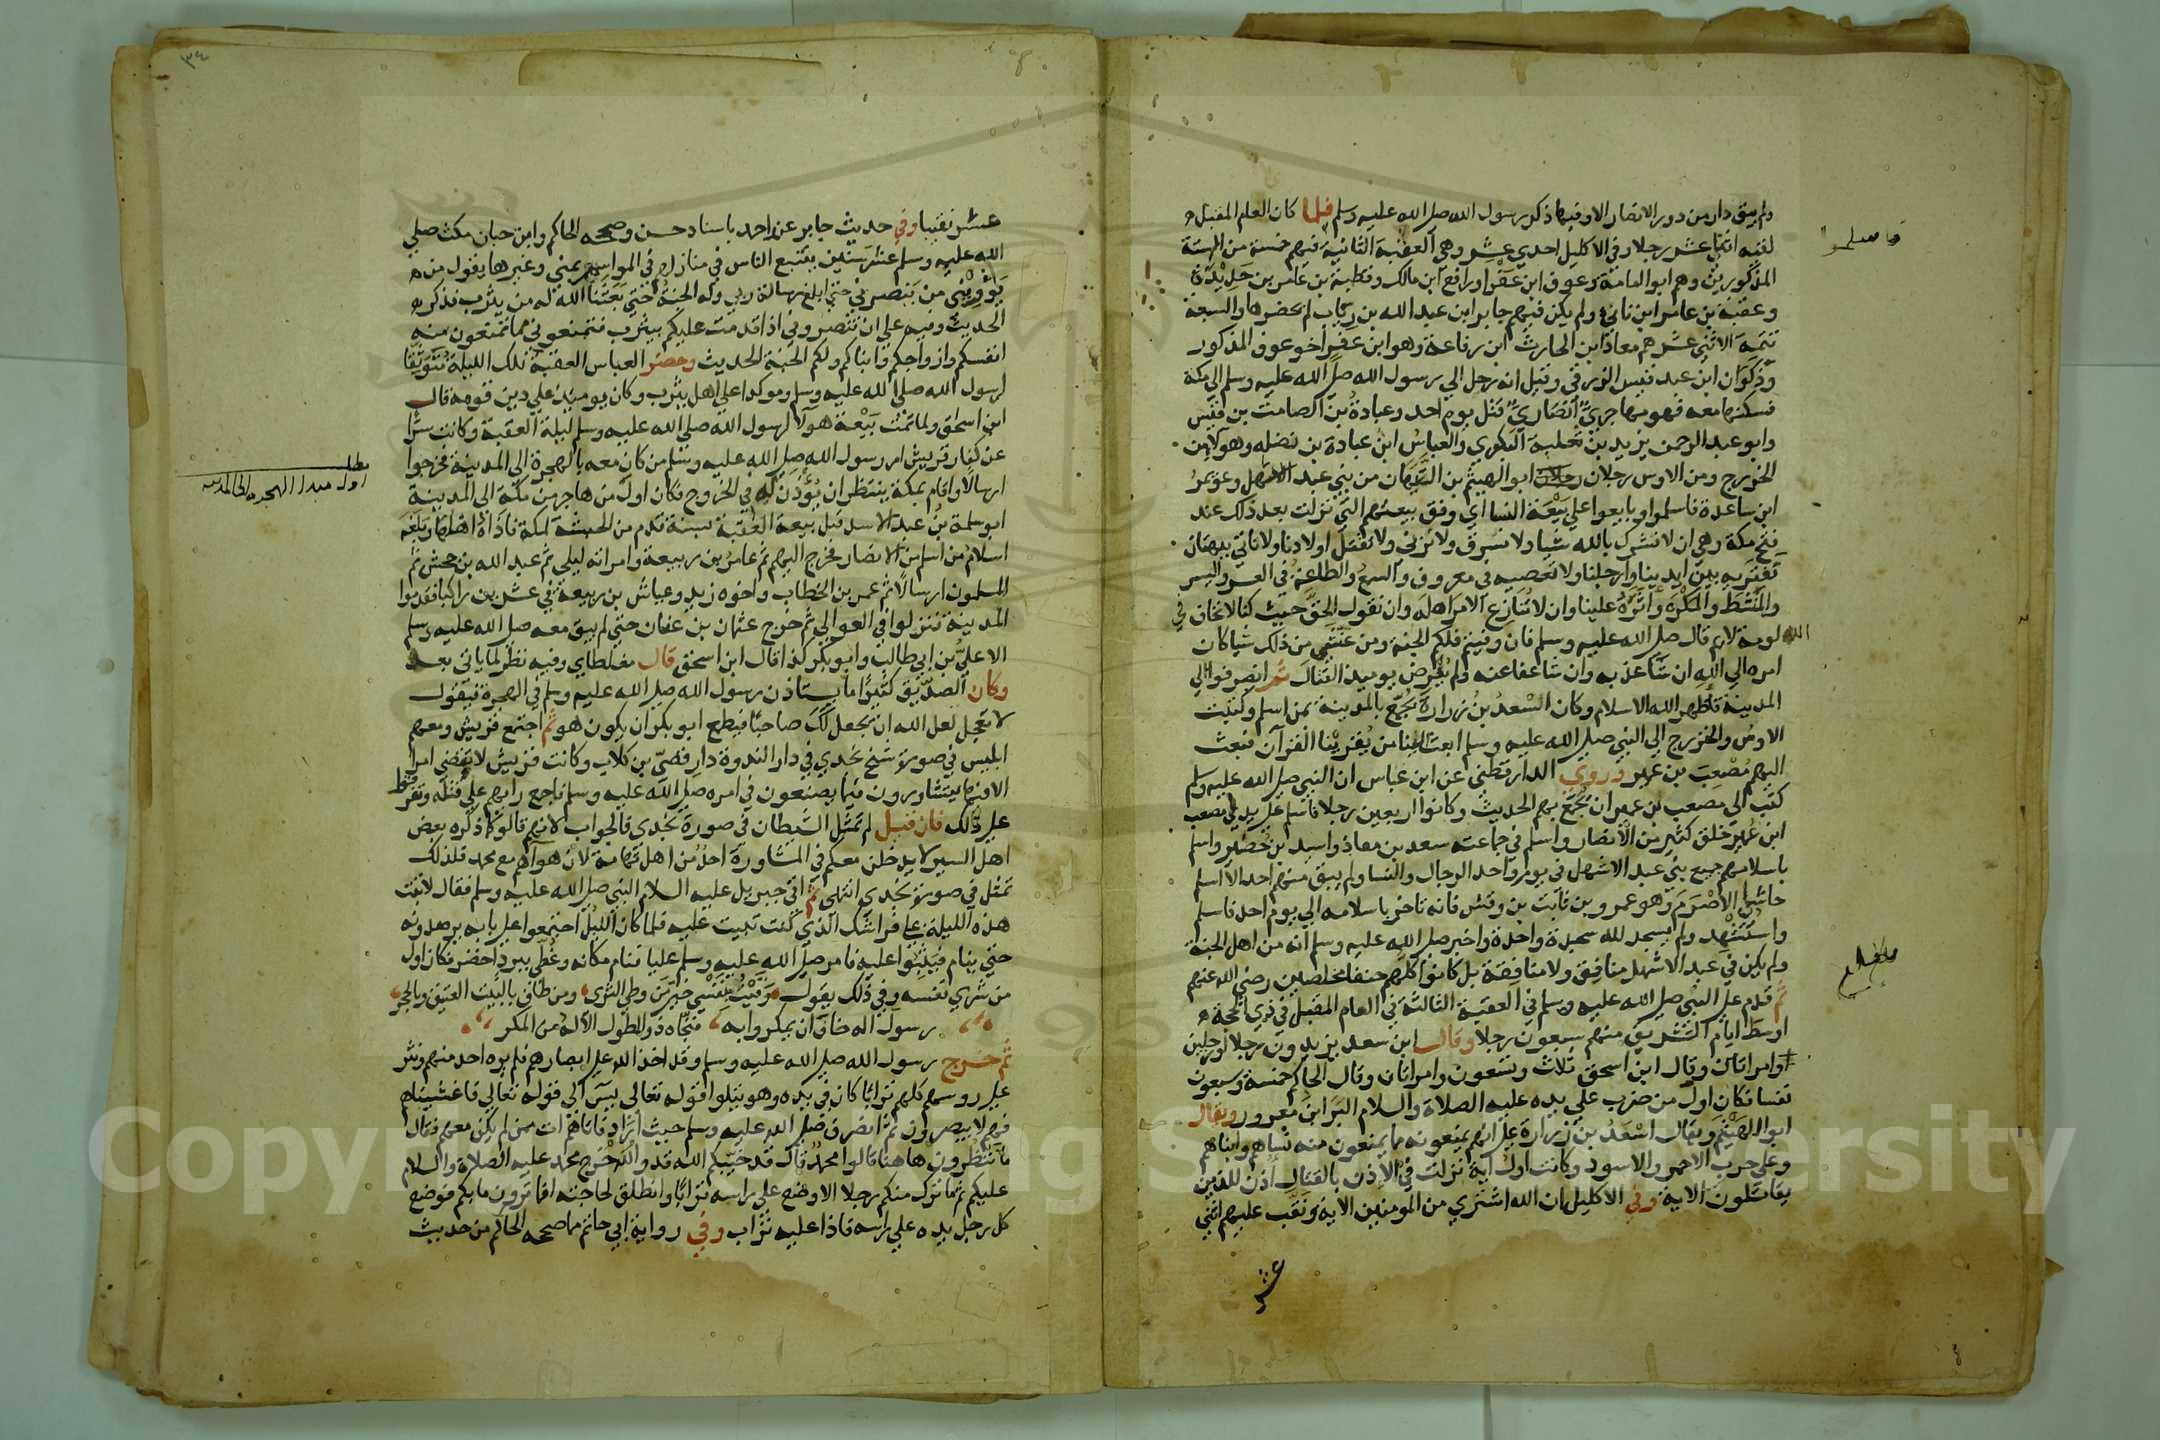 ولم يبق دار من دور الانصار الا وفيها ذكر رسول الله صلى الله عليه وسلم فلما كان العام المقبل
لقيه اثنا عشر رجلا وفي الاكليل احدي عشر وهي العقبة الثانية فيهم خمسة من الستة
المذكورين وهم ابو امامة وعوف ابن عفرا ورافع ابن مالك وقطبة بن عامر بن حديدة
وعقبة بن عامر ابن نابي ولم يكن فيهم جابر ابن عبد الله بن رياب لم يحضرها والسبعة
تتمة الاثني عشر هم معاذ ابن الحارث ابن رفاعة وهو ابن عفرا اخو عوف المذكور
وذكوان ابن عبد قيس الزرقي وقيل انه رحل الي رسول الله صلى الله عليه وسلم الي مكة
فسكنها معه فهو مهاجري انصاري قتل يوم احد وعبادة بن الصامت بن قيس
وابو عبد الرحمن يزيد بن ثعلبة البكوي والعباس ابن عبادة بن نضله وهولا من
الخزرج ومن الاوس رجلان ابو الهيثم بن التيهان من بني عبد الاشهل وعويم
ابن ساعدة فاسلموا وبايعوا علي بيعة النسا اي وفق بيعتهم التي نزلت بعد ذلك عند
فتح مكة وهي ان لا نشرك بالله شيا ولا نسرق ولا نزني ولا نقتل اولادنا ولا ناتي ببهتان
نفتريه بين ايدينا وارجلنا ولا نعصيه في معروف والسمع والطاعة في العسر واليسر
والمنشط والمكره واثرة علينا وان لا ننازع الامر اهله وان نقول الحق حيث كنا لا نخاف في
الله لومة لايم قال صلى الله عليه وسلم فان وفيتم فلكم الجنة ومن غشي من ذلك شيا كان
امره الي الله ان شا عذبه وان شا عفا عنه ولم يفرض يوميذ القتال ثم انصرفوا الي
المدينة فاظهر الله الاسلام وكان اسعد بن زرارة يجمع بالمدينة بمن اسلم وكتبت
الاوس والخزرج الي النبي صلى الله عليه وسلم ابعث الينا من يقرينا القرآن فبعث
اليهم مصعب بن عمير وروي الدارقطني عن ابن عباس ان النبي صلى الله عليه وسلم
كتب الي مصعب بن عمير ان يجمع بهم الحديث وكانوا اربعين رجلا فاسلم علي يدي مصعب
ابن عمير خلق كثير من الانصار واسلم في جماعته سعد بن معاذ واسيد بن حضير واسلم
باسلامهم جميع بني عبد الاشهل في يوم واحد الرجال والنسا ولم يبق منهم احد الا اسلم
حاشا الاصرم وهو عمرو بن ثابت بن وقش فانه تاخر باسلامه الي يوم احد فاسلم
واستشهد ولم يسجد لله سجدة واحدة واخبر صلى الله عليه وسلم انه من اهل الجنة
ولم يكن في عبد الاشهل منافق ولا منافقة بل كانوا كلهم حنفا مخلصين رضي الله عنهم
ثم قدم على النبي صلى الله عليه وسلم في العقبة الثالثة في العام المقبل في ذي الحجة
اوسط ايام التشريق منهم سبعون رجلا وقال ابن سعد يزيدون رجلا او رجلين
وامراتان وقال ابن اسحق ثلاث وسبعون وامراتان وقال الحاكم خمسة وسبعون
نفسا فكان اول من ضرب علي يده عليه الصلاة والسلام البرا ابن معرور ويقال
ابو الهيثم ويقال اسعد بن زرارة على انهم يمنعونه مما يمنعون منه نساهم وابناهم
وعلي حرب الاحمر والاسود وكانت اول آية نزلت في الاذن بالقتال أذن للذين
يقاتلون الاية وفي الاكليل ان الله اشتري من المومنين الاية ونقب عليهم اثني
عشر
عشر نقيبا وفي حديث جابر عند احمد باسناد حسن وصححه الحاكم وابن حبان مكث صلي
الله عليه وسلم عشر سنين يتتبع الناس في منازلهم في المواسم بمني وغيرها يقول من
يؤويني من ينصرني حتي ابلغ رسالة ربي وله الجنة حتي بعثنا الله له من يثرب فذكر
الحديث وفيه علي ان تنصروني اذا قدمت عليكم بيثرب فتمنعوني مما تمنعون منه
انفسكم وازواجكم وابناكم ولكم الجنة الحديث وحضر العباس العقبة تلك الليلة متوثقا
لرسول الله صلي الله عليه وسلم وموكدا علي اهل يثرب وكان يوميذ علي دين قومه قال
ابن اسحق ولما تمت بيعة هولآ لرسول الله صلي الله عليه وسلم ليلة العقبة وكانت سرا
عن كفار قريش امر رسول الله صلى الله عليه وسلم من كان معه بالهجرة الي المدينة فخرجوا
ارسالا واقام بمكة ينتظر ان يؤذن له في الخروج فكان اول من هاجر من مكة الي المدينة
ابو سلمة بن عبد الاسد قبل بيعة العقبة بسنة قدم من الحبشة لمكة فاذاه اهلها وبلغه
اسلام من اسلم من الانصار فخرج اليهم ثم عامر بن ربيعة وامراته ليلي ثم عبد الله بن جحش ثم
المسلمون ارسالا ثم عمر بن الخطاب واخوه زيد وعياش بن ربيعة في عشرين راكبا فقدموا
المدينة فنزلوا في العوالي ثم خرج عثمان بن عفان حتي لم يبق معه صلى الله عليه وسلم
الا علي بن ابي طالب وابو بكر كذا قال ابن اسحق قال مغلطاي وفيه نظر لما ياتي بعد
وكان الصديق كثيرا ما يستاذن رسول الله صلى الله عليه وسلم في الهجرة فيقول
لا تعجل لعل الله ان يجعل لك صاحبا فيطمع ابو بكر ان يكون هو ثم اجتمع قريش ومعهم
ابليس في صورة شيخ نجدي في دار الندوة دار قصي بن كلاب وكانت قريش لا تقضي امرا
الا فيها يتشاورون فيما يصنعون في امره صلى الله عليه وسلم فاجمع رايهم علي قتله وتفرقوا
علي ذلك فان قيل لم تمثل الشيطان في صورة نجدي فالجواب لانهم قالوا كما ذكره بعض
اهل السير لا يدخلن معكم في المشاورة احد من اهل تهامة لان هواهم مع محمد فلذلك
تمثل في صورة نجدي انتهي ثم اتي جبريل عليه السلام النبي صلى الله عليه وسلم فقال لا تبت
هذه الليلة على فراشك الذي كنت تبيت عليه فلما كان الليل اجتمعوا علي بابه يرصدونه
حتي ينام فيثبوا عليه فامر صلى الله عليه وسلم عليا فنام مكانه وغطي ببرد اخضر فكان اول
من شري نفسه وفي ذلك يقول وقيت بنفسي خير من وطي الثري ومن طاف بالبيت العتيق وبالحجر
رسول اله خاف ان يمكروا به فنجاه ذو الطول الآله من المكر
ثم خرج رسول الله صلى الله عليه وسلم وقد اخذ الله على ابصارهم فلم يره احد منهم ونثر
علي روسهم كلهم ترابا كان في يده وهو يتلوا قوله تعالي يس الي قوله تعالي فاغشيناهم
فهم لا يبصرون ثم انصرف صلى الله عليه وسلم حيث اراد فاتاهم ات ممن لم يكن معهم فقال
ما تنتظرون هاهنا قالوا محمد قال قد خيبكم الله قد والله خرج محمد عليه الصلاة والسلام
عليكم ثم ما ترك منكم رجلا الا وضع علي راسه ترابا وانطلق لحاجته افما ترون ما بكم فوضع
كل رجل يده علي راسه فاذا عليه تراب وفي رواية ابي حاتم مما صححه الحاكم من حديث
مطلب
اول مبدا الهجرة الي المدينة
٣٤